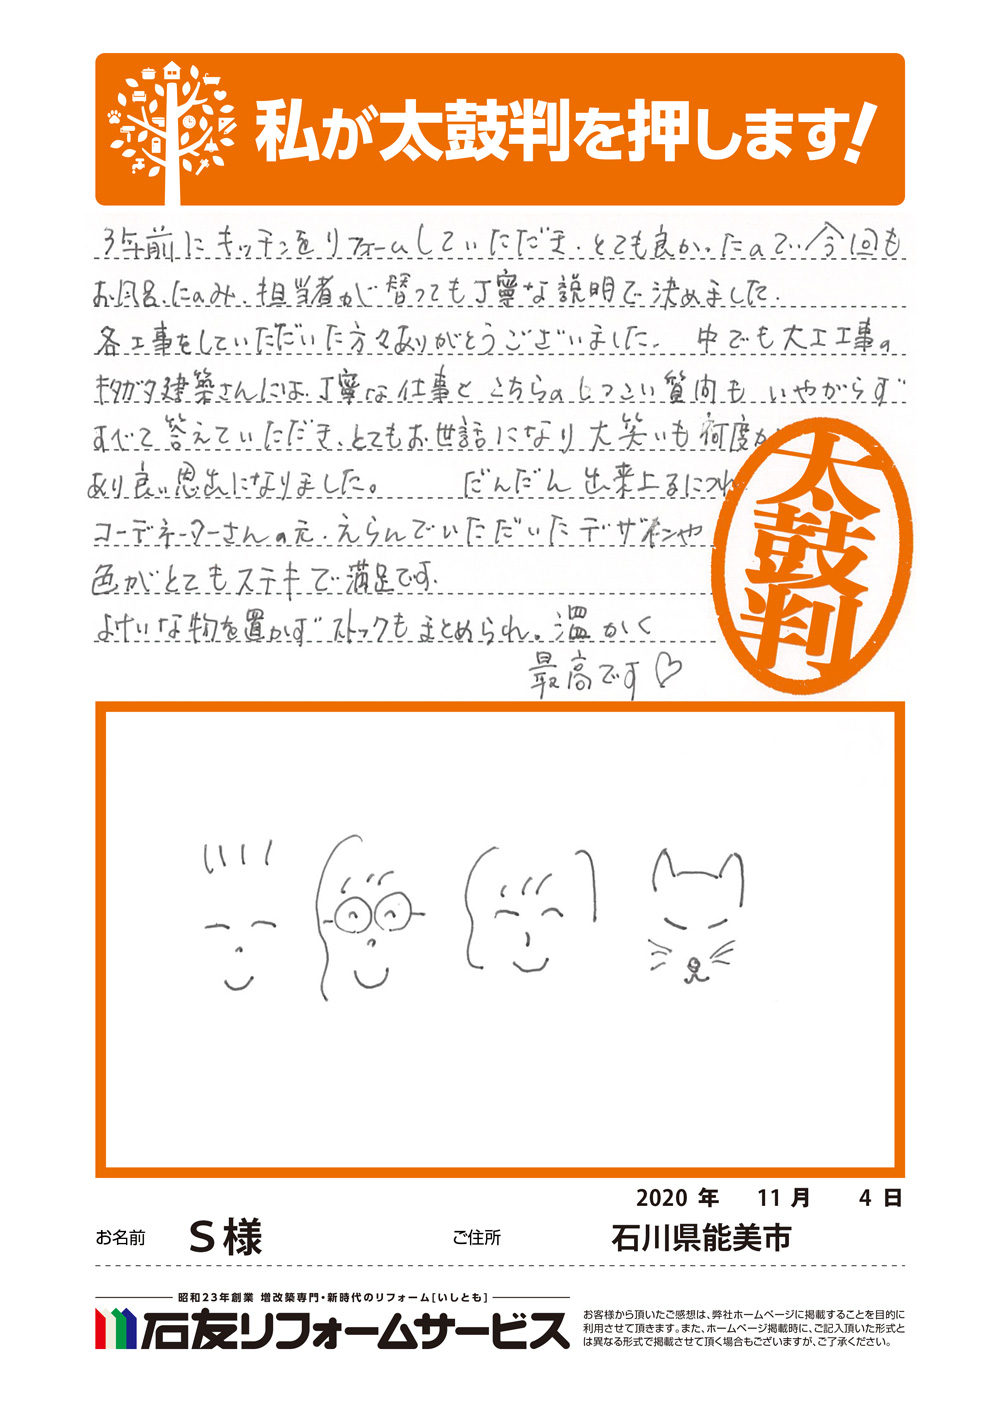 私が太鼓判を押します!
3年前にキッチンをリフォームしていただき、とても良かったので、今回も
お風呂、たのみ、担当者が替っても丁寧な説明で決めました。
各工事をしていただいた方々ありがとうございました。 中でも大工工事の
キタガタ建築さんには、丁寧な仕事とこちらのしつこい質問も いやがらず
すべて答えていただき、とてもお世話になり大笑いも何度か
あり良い思出になりました。 だんだん出来上るにつれ
コーデネーターさんの元、えらんでいただいたデザインや
色がとてもステキで満足です。
よけいな物を置かずストックもまとめられ。温かく
最高です♡
太鼓判
2020 年 11 月 4 日
お名前 S様 ご住所 石川県能美市
昭和23年創業 増改築専門・新時代のリフォーム[いしとも]
石友リフォームサービス
お客様から頂いたご感想は、弊社ホームページに掲載することを目的に
利用させて頂きます。また、ホームページ掲載時に、ご記入頂いた形式と
は異なる形式で掲載させて頂く場合もございますが、ご了承ください。